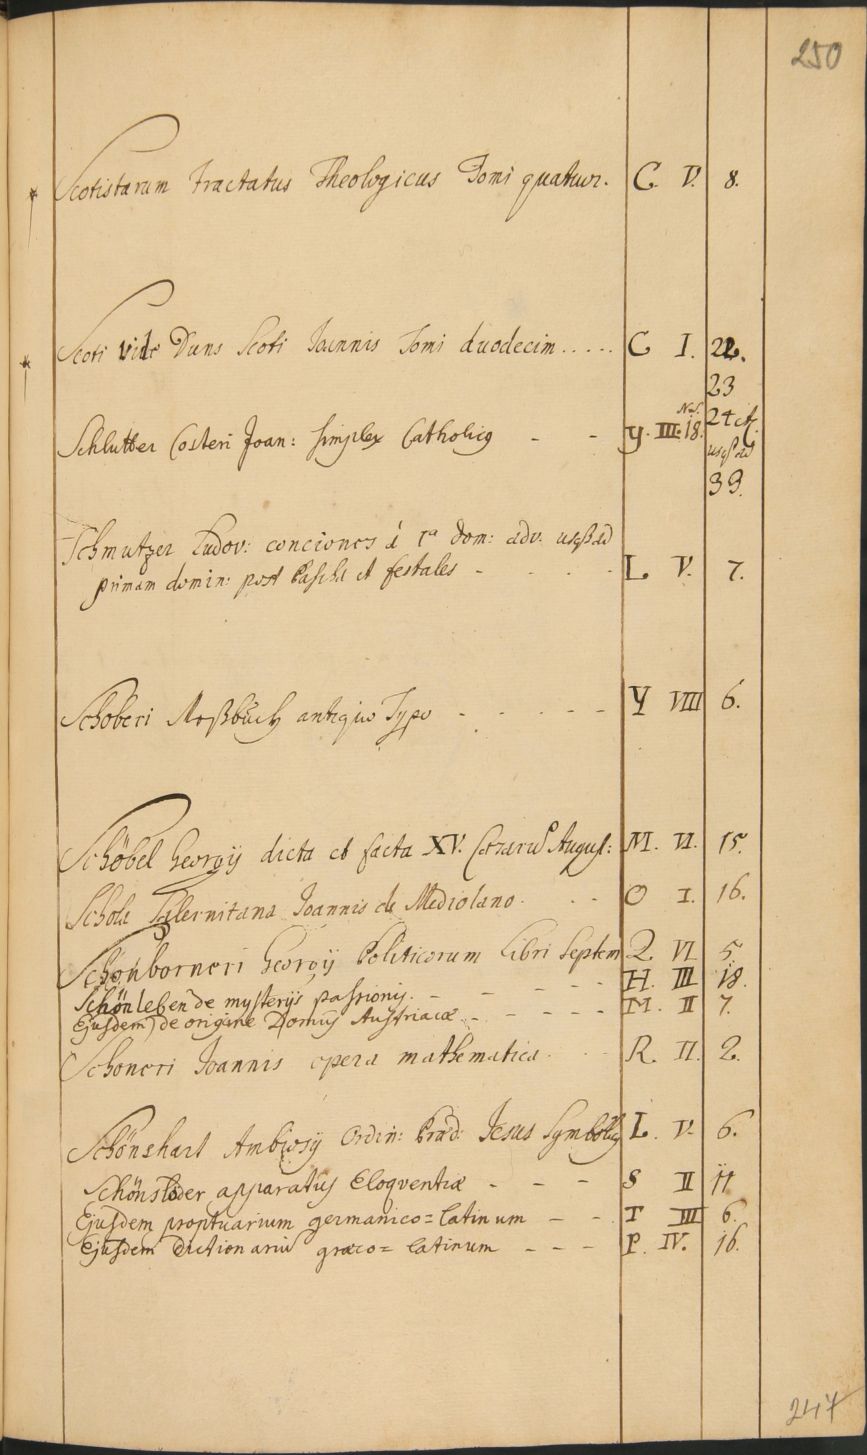 250
Scotistarum tractatus Theologicus Tomi quatuor. C. V. 8.
Scoti vide Duns Scoti Joannis Tomi duodecim..... C I. 22.
23
24 et
Schlutter Costeri Joan: simplex Catholicq - - Y. III. No. 18.
usq3 ad
39.
Schmutzer Ludov: conciones á 1a dom: adv. usq3 ad
primam domin: post Pascha et festales - - - - L V. 7.
Schoberi Roßbuch antiquo Typo - - - - - Y VIII 6.
Schöbel Georgij dicta et facta XV. Cæsarū August: M. VI. 15.
Schola Salernitana Joannis de Mediolano. - - O I. 16.
Schonborneri Georgij Politicorum Libri Septem Q VI 5.
Schönleben de mysterijs passionis. - - - - - H. III 18.
Ejusdem de origine Domus Austriacæ - - - - - M. II 7.
Schoneri Joannis opera mathematica. - - R. II. 2.
Schönshart Ambrosij Ordin: Præd: Jesus Symbolicq L. V. 6.
Schönsleder apparatus Eloqventiæ - - - S II 11
Ejusdem promptuarium germanico=latinum - - T III 6.
Ejusdem Dictionariū græco=latinum - - - P. IV. 16.
247